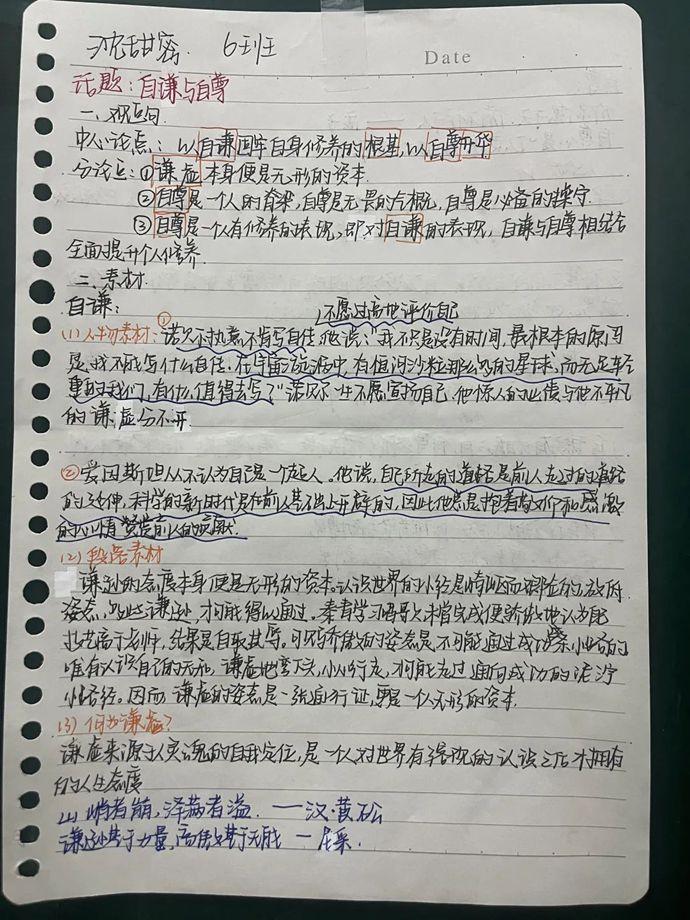 沈甜密 6班 Date
话题：自谦与自尊
一、观点句
中心论点：以自谦回牢自身修养的根基，以自尊升华
分论点：①谦虚本身便是无形的资本.
②自尊是一个人的脊梁，自尊是无畏的气概，自尊是必备的操守.
③自尊是一个有修养的表现，即对自谦的表现，自谦与自尊相结合
全面提升个人修养.
二、素材
自谦： 不愿过高地评价自己
(1)人物素材：①诺贝尔执意不肯写自传，他说：“我不只是没有时间，最根本的原因
是我不能写什么自传.在宇宙漩涡中有恒河沙粒那么多的星球，而无足轻
重的我们，有什么值得去写？”诺贝尔一生不愿宣扬自己，他惊人的业绩与他不平凡
的谦虚分不开.
②爱因斯坦从不认为自己是一个超人。他说，自己所走的道路是前人走过的道路
的延伸，科学的新时代是在前人基础上开辟的，因此他总是抱着敬仰和感激
的心情赞赏前人的贡献.
(2)段落素材
谦逊的态度本身便是无形的资本。认识世界的小径是
姿态，如此谦逊，才可能得以通过。秦青学习讴哥未曾完成便骄傲地认为
技艺高于老师，结果是自取其辱。可见骄傲的姿态是不可能通过成功窄小的路的
唯有认识自己的无知，谦虚地弯下头，小心行走，才可能走过通向成功的泥泞
小路径。因而，谦虚的姿态是一张通行证，更是一个人无形的资本.
(3)何为谦虚？
谦虚来源于人灵魂的自我定位，是一个人对世界有客观的认识之后才拥有
的人生态度
山峭者崩，泽满者溢. ——汉·黄石公
谦逊基于力量，高傲基于无能 — 尼采.